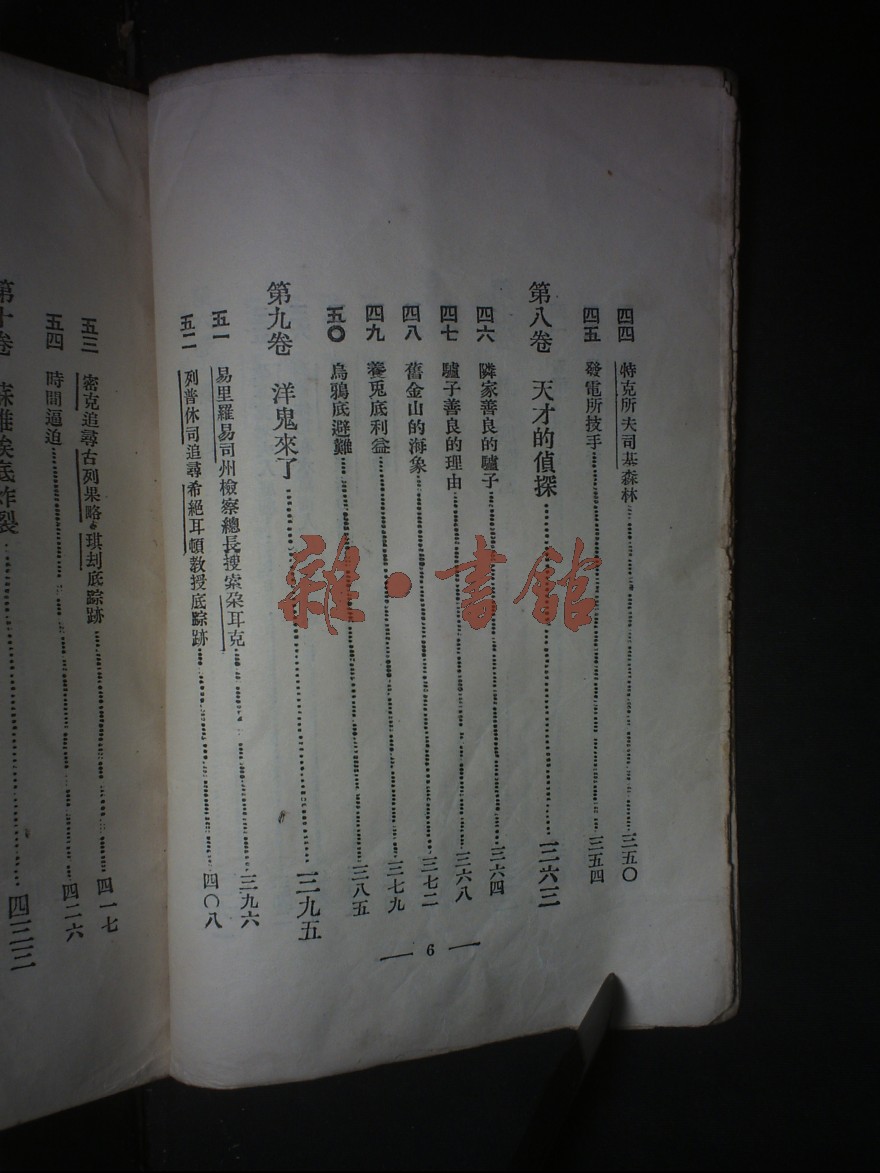 四四 特克所夫司基森林 三五〇
四五 發電所技手 三五四
第八卷 天才的偵探 三六三
四六 隣家善良的驢子 三六四
四七 驢子善良的理由 三六八
四八 舊金山的海象 三七二
四九 養兎底利益 三七九
五〇 烏鴉底避難 三八五
第九卷 洋鬼來了 三九五
五一 易里羅易司州檢察總長搜索朶耳克 三九六
五二 列普休司追尋希絕耳頓教授底踪跡 四〇八
— 6 —
五三 密克追尋古列果略·琪刦底踪跡 四一七
五四 時間逼迫 四二六
第十卷 蘇維埃底炸裂 四三三
雜·書館